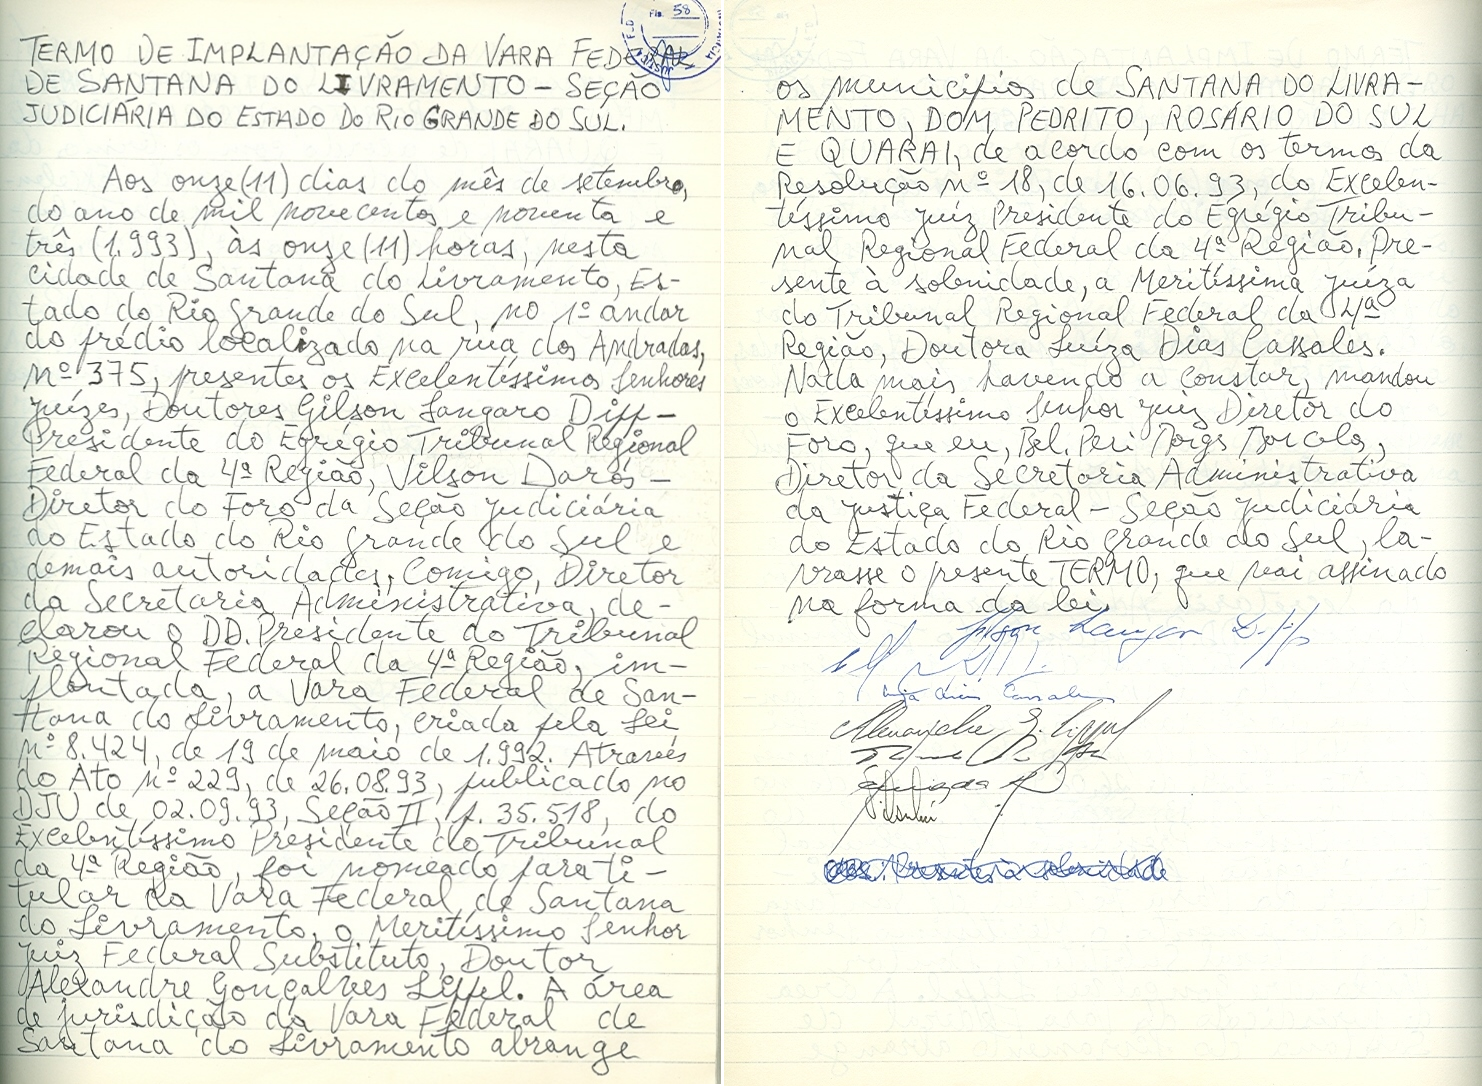 Fls. 58
TERMO DE IMPLANTAÇÃO DA VARA FEDERAL
DE SANTANA DO LIVRAMENTO - SEÇÃO
JUDICIÁRIA DO ESTADO DO RIO GRANDE DO SUL.
Aos onze (11) dias do mês de setembro,
do ano de mil novecentos e noventa e
três (1.993), às onze (11) horas, nesta
cidade de Santana do Livramento, Es-
tado do Rio Grande do Sul, no 1º andar
do prédio localizado na rua dos Andradas,
Nº 375, presentes os Excelentíssimos Senhores
Juízes, Doutores Gilson Langaro Dipp -
Presidente do Egrégio Tribunal Regional
Federal da 4ª Região, Vilson Darós -
Diretor do Foro da Seção Judiciária
do Estado do Rio Grande do Sul e
demais autoridades, Comigo, Diretor
da Secretaria Administrativa, de-
clarou o DD. Presidente do Tribunal
Regional Federal da 4ª Região, im-
plantada, a Vara Federal de San-
tana do Livramento, criada pela Lei
nº 8.424, de 19 de maio de 1.992. Através
do Ato nº 229, de 26.08.93, publicado no
DJU de 02.09.93, Seção II, p. 35.518, do
Excelentíssimo Presidente do Tribunal
da 4ª Região, foi nomeado para ti-
tular da Vara Federal de Santana
do Livramento, o Meritíssimo Senhor
Juiz Federal Substituto, Doutor
Alexandre Gonçalves Lippel. A área
de jurisdição da Vara Federal de
Santana do Livramento abrange
os municípios de SANTANA DO LIVRA-
MENTO, DOM PEDRITO, ROSÁRIO DO SUL
E QUARAI, de acordo com os termos da
Resolução nº 18, de 16.06.93, do Excelen-
tíssimo Juiz Presidente do Egrégio Tribu-
nal Regional Federal da 4ª Região. Pre-
sente à solenidade, a Meritíssima Juíza
do Tribunal Regional Federal da 4ª
Região, Doutora Luíza Dias Cassales.
Nada mais havendo a constar, mandou
o Excelentíssimo Senhor Juiz Diretor do
Foro, que eu, Bel. Peri
Diretor da Secretaria Administrativa
da Justiça Federal - Seção Judiciária
do Estado do Rio Grande do Sul, la-
vrasse o presente TERMO, que vai assinado
na forma da lei.
Gilson Langaro Dipp
Luíza Dias Cassales
Alexandre G. Lippel